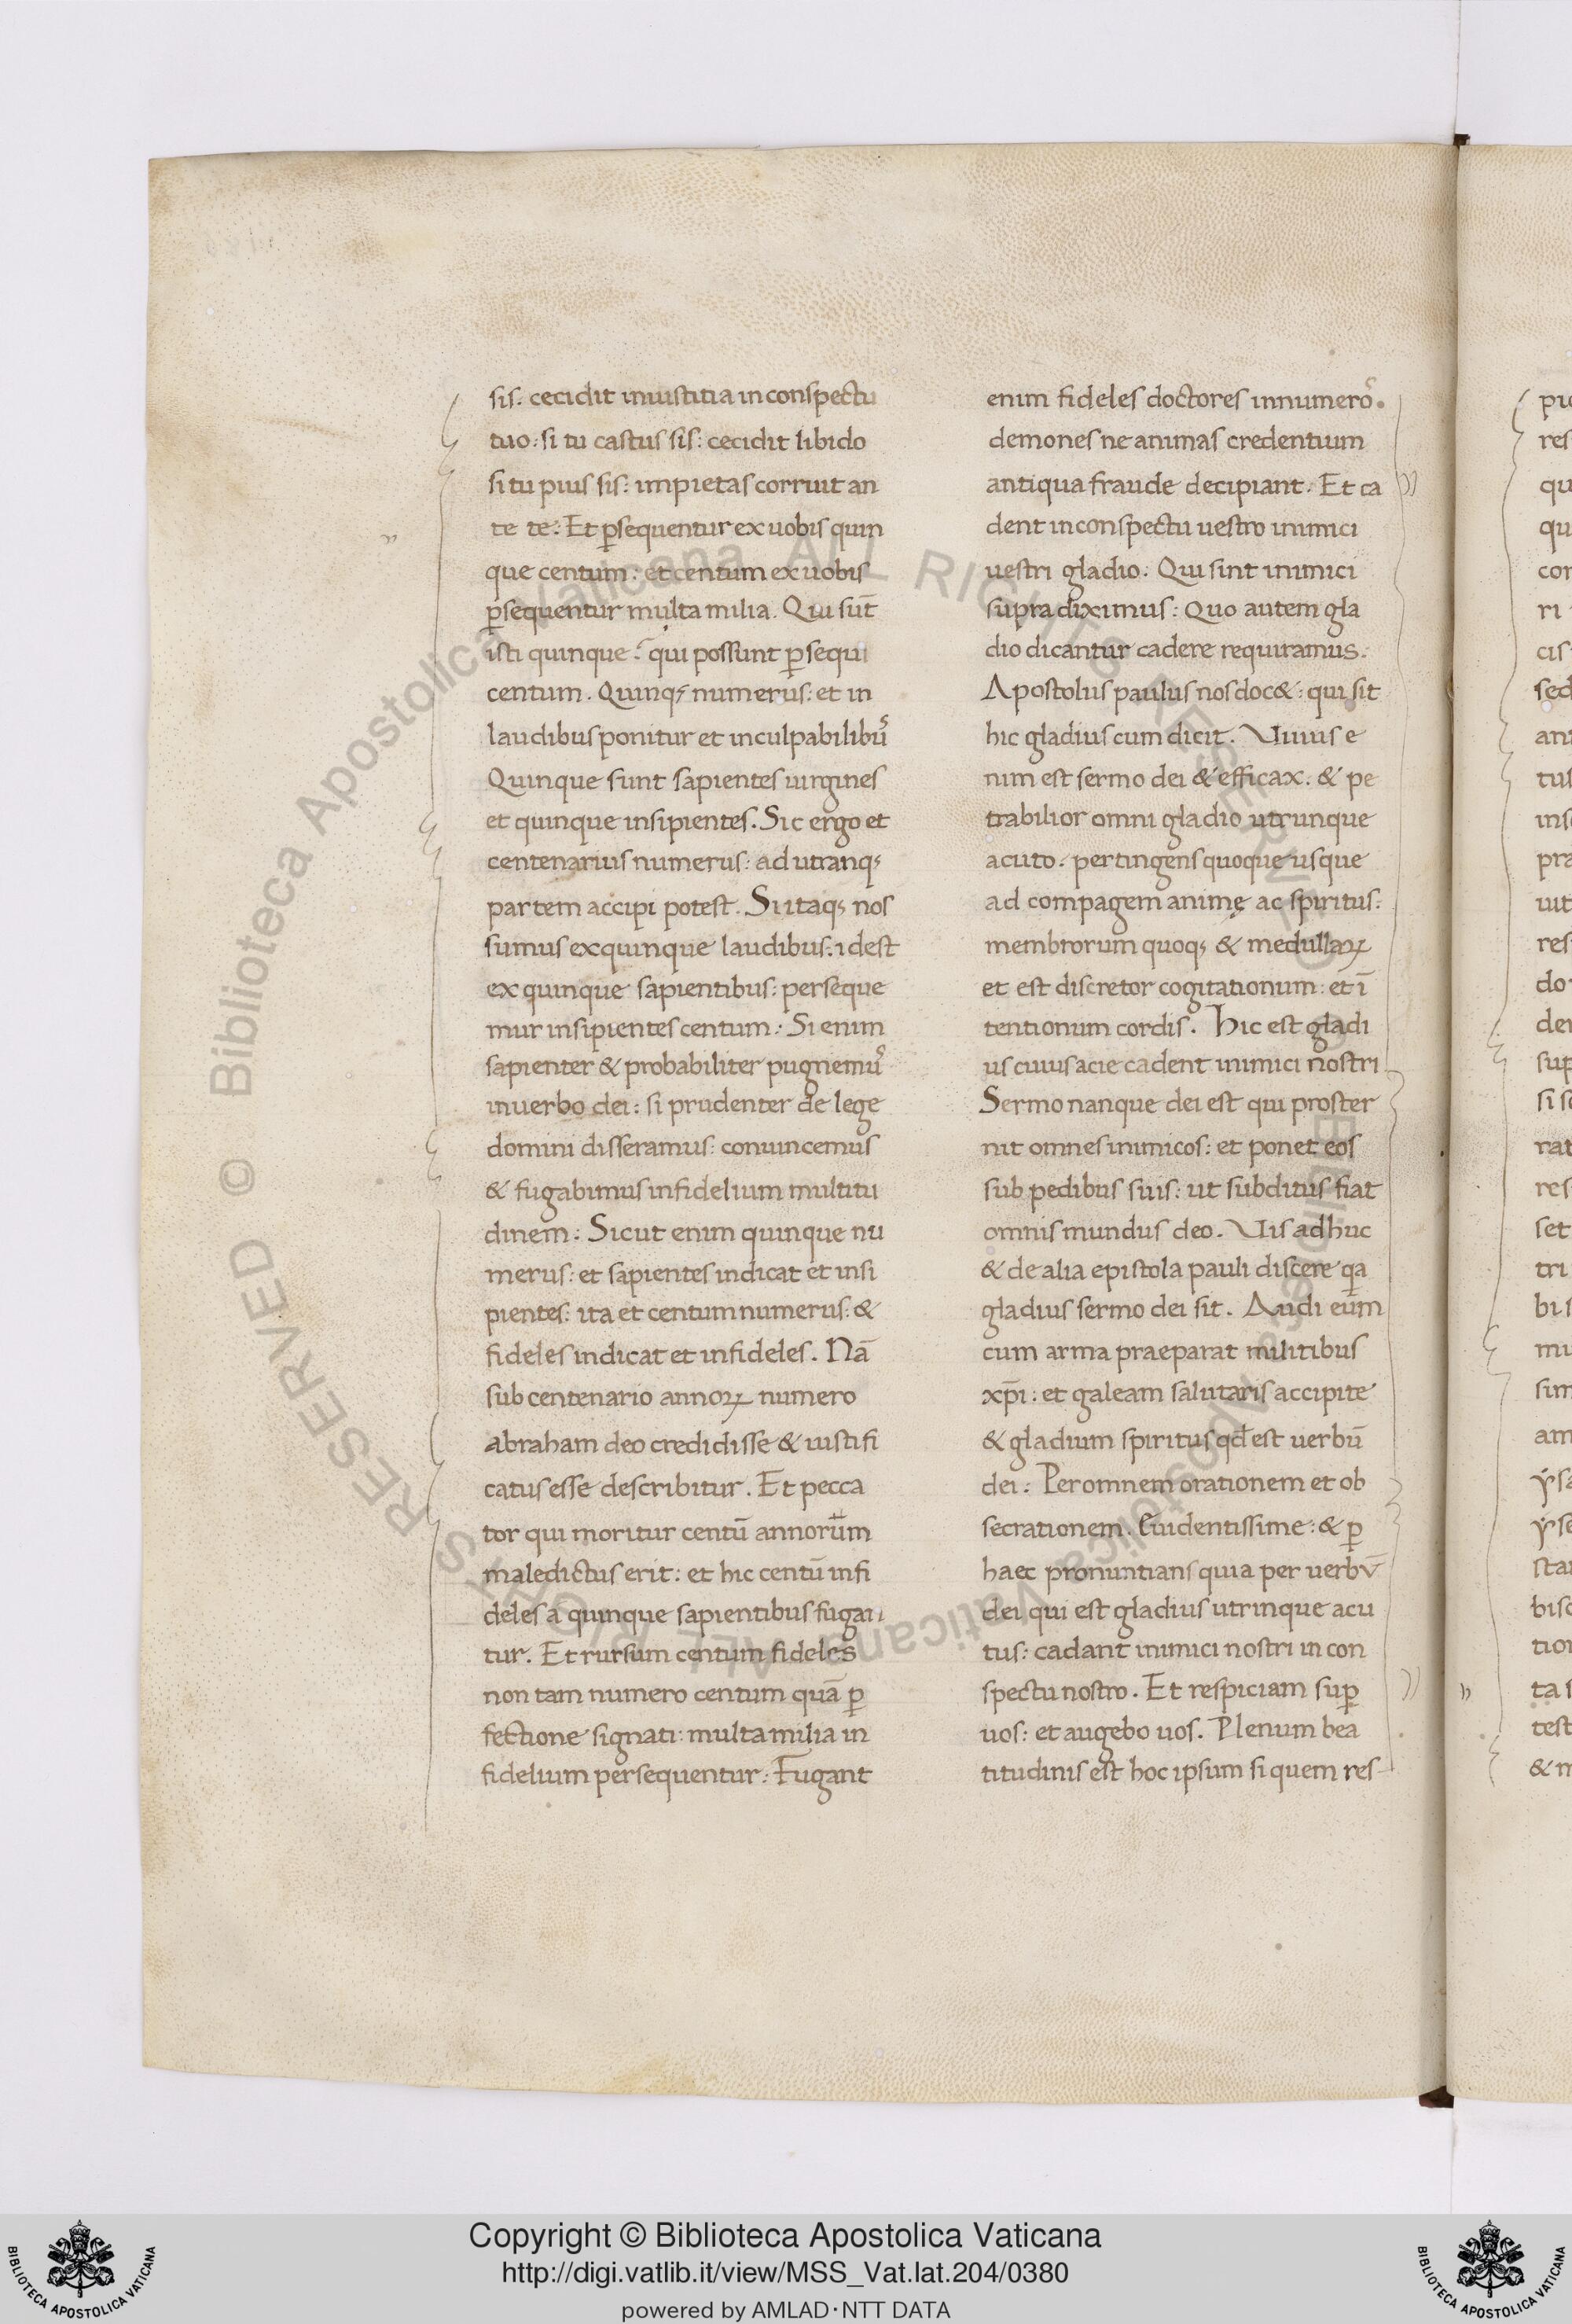 sis: cecidit iniustitia in conspectu
tuo: si tu castus sis: cecidit libido
si tu pius sis: impietas corruit an
te te: Et p̱sequentur ex uobis quin
que centum: et centum ex uobis
p̱sequentur multa milia. Qui sūt
isti quinque? qui possunt p̱sequi
centum. Quinq; numerus: et in
laudibus ponitur et inculpabilibuˢ
Quinque sunt sapientes uirgines
et quinque insipientes. Sic ergo et
centenarius numerus: ad utranq;
partem accipi potest. Si itaq; nos
sumus ex quinque laudibus: idest
ex quinque sapientibus: perseque
mur insipientes centum: Si enim
sapienter & probabiliter pugnemuˢ
in uerbo dei: si prudenter de lege
domini disseramus: conuincemus
& fugabimus infidelium multitu
dinem: Sicut enim quinque nu
merus: et sapientes indicat et insi
pientes: ita et centum numerus: &
fideles indicat et infideles. Nā
sub centenario annoꝝ numero
abraham deo credidisse & iustifi
catus esse describitur. Et pecca
tor qui moritur centū annorum
maledictus erit: et hic centū infi
deles a quinque sapientibus fugan
tur. Et rursum centum fideles
non tam numero centum quā p̱
fectione signati: multa milia in
fidelium persequentur: Fugant
enim fideles doctores innumeroˢ.
demones ne animas credentium
antiqua fraude decipiant. Et ca
dent in conspectu uestro inimici
uestri gladio: Qui sint inimici
supra diximus: Quo autem gla
dio dicantur cadere requiramus.
Apostolus paulus nos doc&: qui sit
hic gladius cum dicit. Viuus e
nim est sermo dei & efficax. & pe
trabilior omni gladio utrunque
acuto. pertingens quoque usque
ad compagem animę ac spiritus:
membrorum quoq; & medullaꝝ
et est discretor cogitationum: et ī
tentionum cordis. Hic est gladi
us cuius acie cadent inimici nostri
Sermo nanque dei est qui proster
nit omnes inimicos: et ponet eos
sub pedibus suis: ut subditus fiat
omnis mundus deo. Vis adhuc
& de alia epistola pauli discere qa
gladius sermo dei sit. Audi eum
cum arma praeparat militibus
xp̄i: et galeam salutaris accipite
& gladium spiritus qđ est uerbū
dei: Per omnem orationem et ob
secrationem. Euidentissime: & p̱
haec pronuntians quia per uerbū
dei qui est gladius utrinque acu
tus: cadant inimici nostri in con
spectu nostro. Et respiciam sup̱
uos: et augebo uos. Plenum bea
titudinis est hoc ipsum si quem res
Copyright © Biblioteca Apostolica Vaticana
http://digi.vatlib.it/view/MSS_Vat.lat.204/0380
powered by AMLAD·NTT DATA
BIBLIOTECA APOSTOLICA VATICANA
BIBLIOTECA APOSTOLICA VATICANA